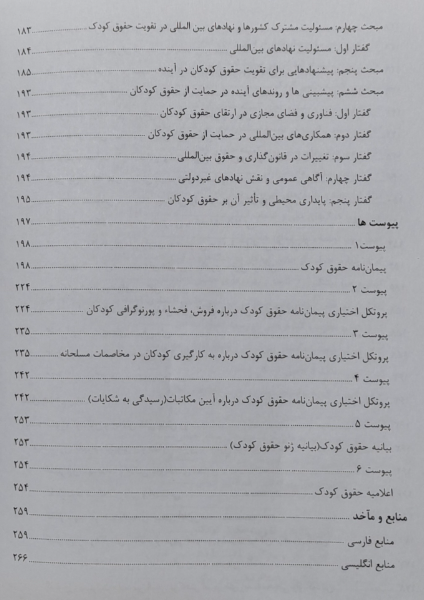 مبحث چهارم: مسئولیت مشترک کشورها و نهادهای بین المللی در تقویت حقوق کودک ۱۸۳
گفتار اول: مسئولیت نهادهای بین‌المللی ۱۸۴
مبحث پنجم: پیشنهادهایی برای تقویت حقوق کودکان در آینده ۱۸۵
مبحث ششم: پیشبینی ها و روندهای آینده در حمایت از حقوق کودکان ۱۹۳
گفتار اول: فناوری و فضای مجازی در ارتقای حقوق کودکان ۱۹۳
گفتار دوم: همکاری‌های بین‌المللی در حمایت از حقوق کودکان ۱۹۳
گفتار سوم: تغییرات در قانون‌گذاری و حقوق بین‌المللی ۱۹۴
گفتار چهارم: آگاهی عمومی و نقش نهادهای غیردولتی ۱۹۴
گفتار پنجم: پایداری محیطی و تأثیر آن بر حقوق کودکان ۱۹۵
پیوست ها ۱۹۷
پیوست۱ ۱۹۸
پیمان‌نامه حقوق کودک ۱۹۸
پیوست ۲ ۲۲۴
پروتکل اختیاری پیمان‌نامه حقوق کودک درباره فروش، فحشاء و پورنوگرافی کودکان ۲۲۴
پیوست ۳ ۲۳۵
پروتکل اختیاری پیمان‌نامه حقوق کودک درباره به کارگیری کودکان در مخاصمات مسلحانه ۲۳۵
پیوست ۴ ۲۴۲
پروتکل اختیاری پیمان‌نامه حقوق کودک درباره آیین مکاتبات(رسیدگی به شکایات) ۲۴۲
پیوست ۵ ۲۵۳
بیانیه حقوق کودک(بیانیه ژنو حقوق کودک) ۲۵۳
پیوست ۶ ۲۵۴
اعلامیه حقوق کودک ۲۵۴
منابع و مآخد ۲۵۹
منابع فارسی ۲۵۹
منابع انگلیسی ۲۶۶